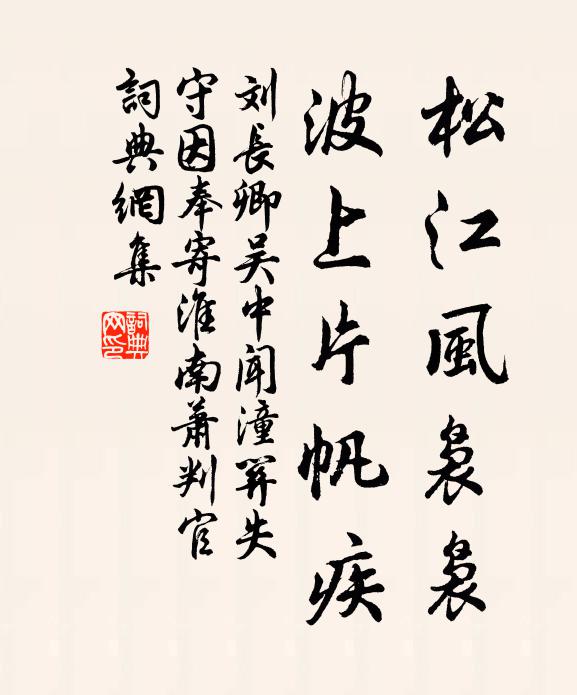 松江風裊裊
波上片帆疾
刘長卿吴中聞潼関失
守因奉寄淮南蕭判官
詞典網集
詞典
网印